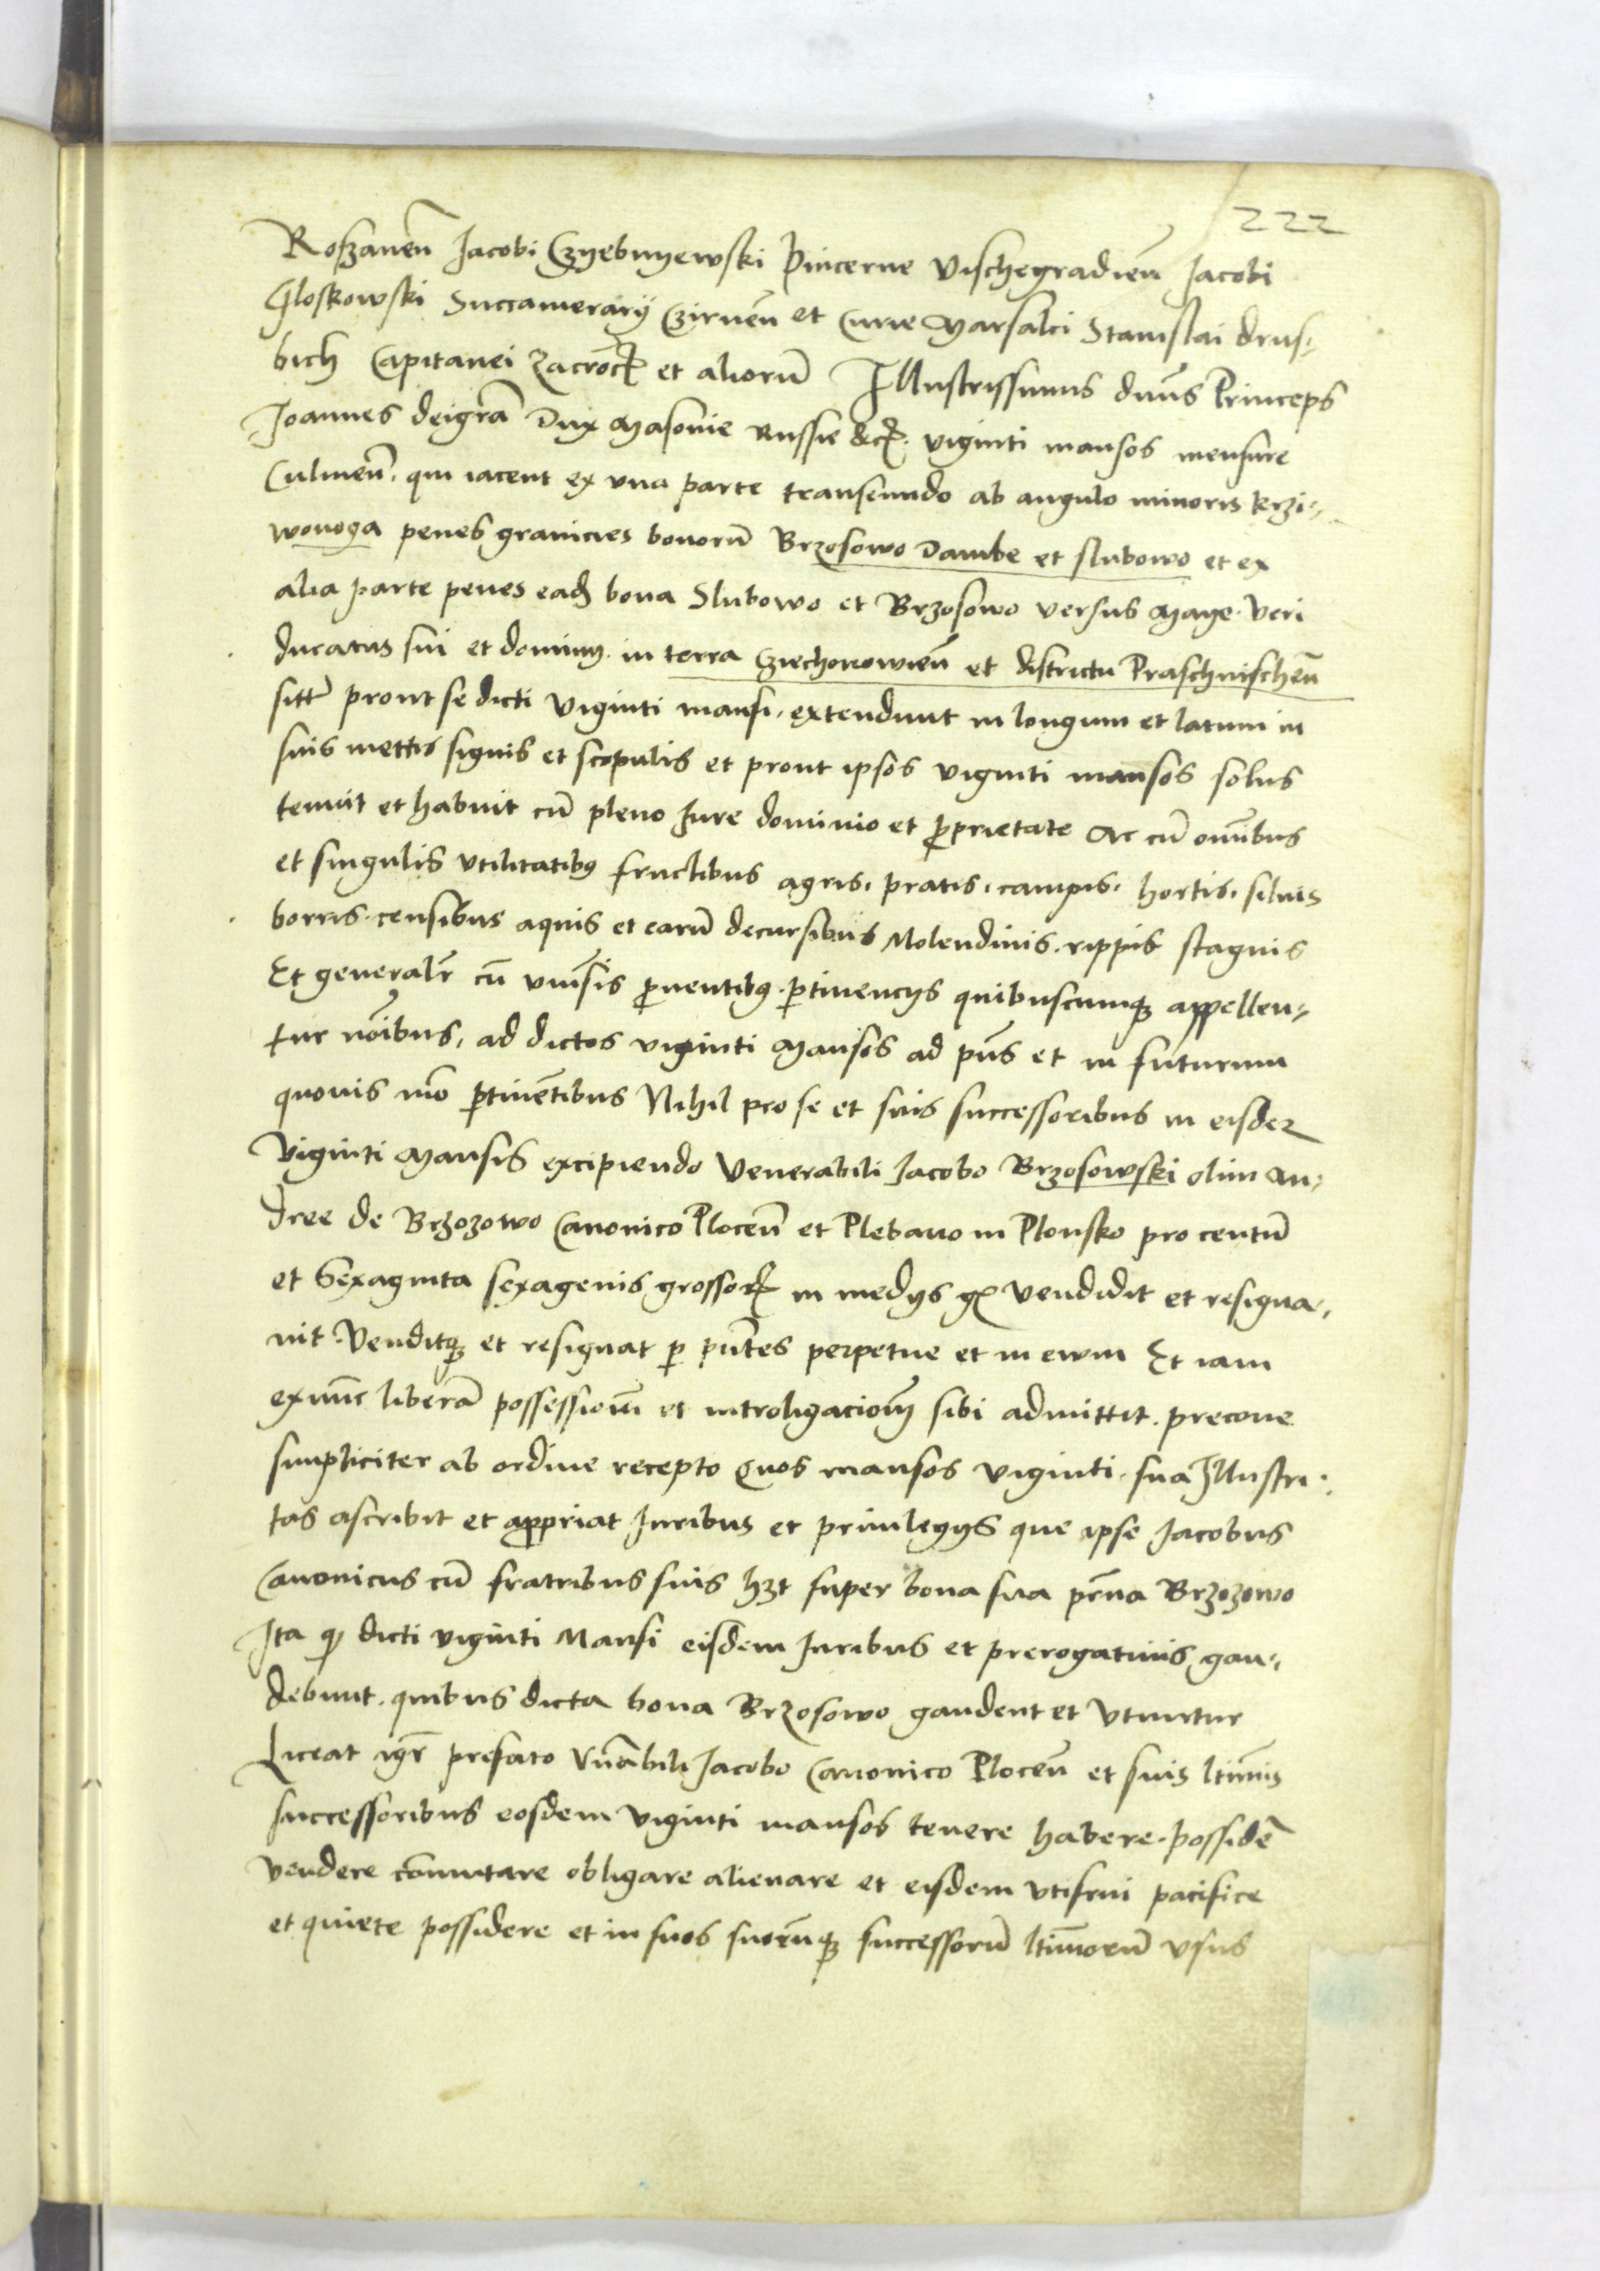 222
Roszaneñ Jacobi Czyebnyewski Pincerne Vischegradieñ Jacobi
Gloskowski Succamerarij Czirneñ et Curie Marsalci Stanislai drus-
bich Capitanei Zacroc̃ et aliorũ Illustrissimus dñus Princeps
Joannes deigrã Dux Masouie Russie &c. viginti mansos mensure
Culmeñ. qui iacent ex vna parte transeundo ab angulo minoris krzi-
wonoga penes granicies bonorũ Brzosowo Dambe et slubowo et ex
alia parte penes eadẽ bona Slubowo et Brzosowo versus Mage. veri
ducatus sui et dominij. in terra Cziechonowieñ et districtu Praschnischeñ
sitt̃ prout se dicti viginti mansi. extendunt in longum et latum in
suis mettis signis et scopulis et prout ipsos viginti mansos solus
tenuit et habuit cũ pleno Jure dominio et proprietate Ac cũ om̃ibus
et singulis vtilitatibus fructibus agris. pratis. campis. hortis. siluis
borris. censibus aquis et earũ decursibus Molendinis. rippis stagnis
Et generalr̃ cũ vniũsis prouentibus. pertinencijs quibuscumque appellen-
tur noĩbus, ad dictos viginti Mansos ad pñs et in futurum
quouis mõ pertinẽtibus Nihil pro se et suis successoribus in eisdem
viginti Mansis excipiendo Venerabili Jacobo Brzosowski olim An-
dree de Brzozowo Canonico Ploceñ et Plebano in Plonsko pro centũ
et Sexaginta sexagenis grossor̃ in medijs gr̃ vendidit et resigna-
uit. Venditque et resignat per pñtes perpetue et in ewm Et iam
exnũc liberã possessionẽ et introligacionẽ sibi admittit. precone
simpliciter ab ordine recepto Quos mansos viginti. sua Illustri-
tas ascribit et appropriat Juribus et priuilegijs que ipse Jacobus
Canonicus cũ fratribus suis hzt super bona sua pr̃na Brzozowo
Ita que dicti viginti Mansi eisdem Juribus et prerogatiuis gau-
debunt. quibus dicta bona Brzosowo gaudent et vtuntur
Liceat igr̃ prefato Vñabili Jacobo Canonico Ploceñ et suis ltiñis
successoribus eosdem viginti mansos tenere habere. possidẽ
vendere cõmutare obligare alienare et eisdem vtifrui pacifice
et quiete possidere et in suos suorũque successorũ ltimorũ vsus